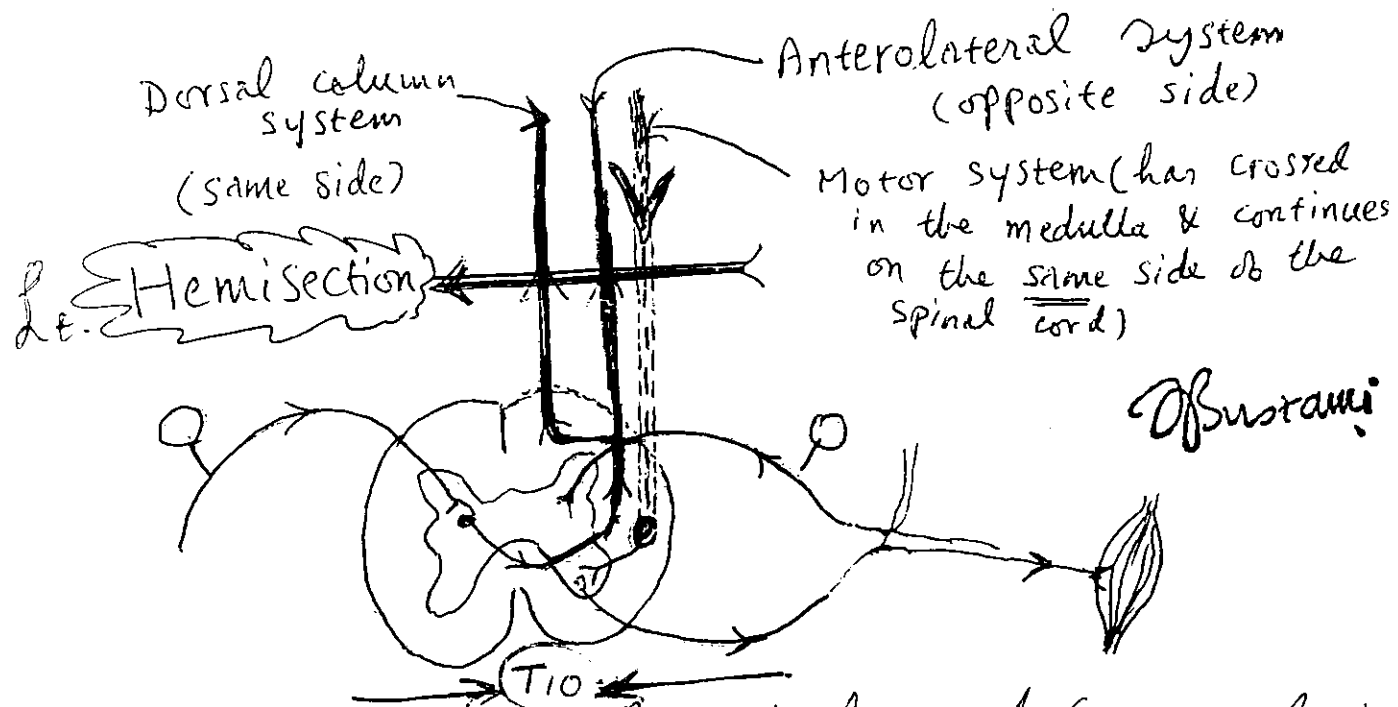 Dorsal column
system
(same side)
Anterolateral system
(opposite side)
Motor system (has crossed
in the medulla & continues
on the same side of the
spinal cord)
Lt. Hemisection
T10